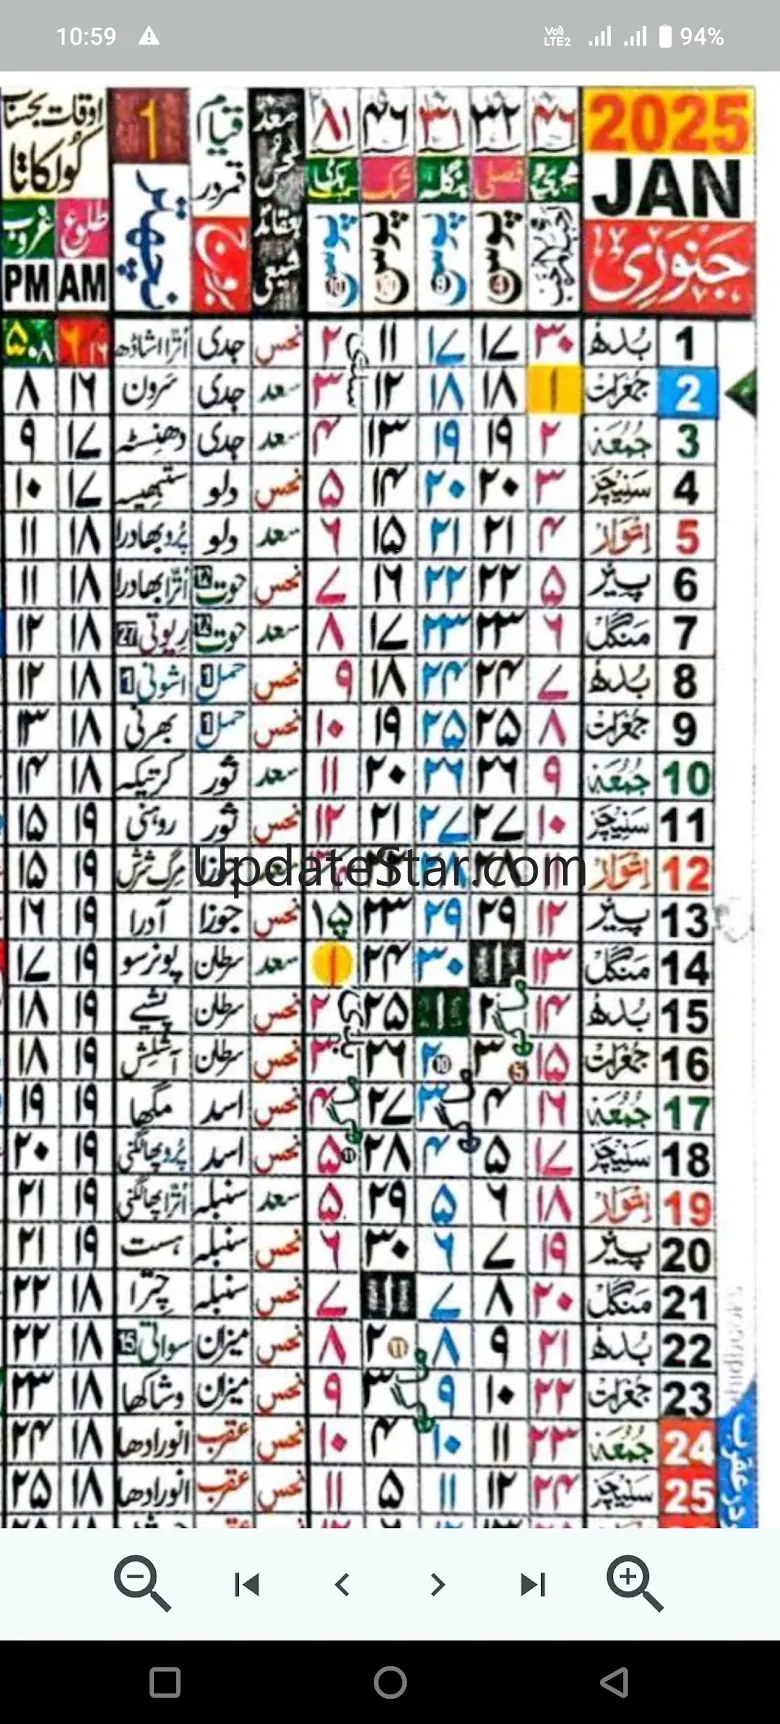 10:59 94%
2025 ۴۶ ۳۲ ۳۱ ۴۶ ۸۱ سعد نحس قیام قمر در 1 اوقات بحساب کولکاتا
JAN ہجری فصلی بنگلہ شک بکرمی
جنوری پوس پوس پوس پوس بعقائد شیعی برج نچھتر طلوع غروب
AM PM
1 بدھ ۳۰ ۱۷ ۱۷ ۱۱ ۲ نحس جدی اترااشاڑھ ۶ ۱۶ ۵ ۰۸
2 جمعرات ۱ ۱۸ ۱۸ ۱۲ ۳ سعد جدی سرون ۱۶ ۸
3 جمعہ ۲ ۱۹ ۱۹ ۱۳ ۴ سعد جدی دھنسٹہ ۱۷ ۹
4 سنیچر ۳ ۲۰ ۲۰ ۱۴ ۵ نحس دلو ستبھیسہ ۱۷ ۱۰
5 اتوار ۴ ۲۱ ۲۱ ۱۵ ۶ سعد دلو پروبھادرا ۱۸ ۱۱
6 پیر ۵ ۲۲ ۲۲ ۱۶ ۷ نحس حوت اترابھادرا ۱۸ ۱۱
7 منگل ۶ ۲۳ ۲۳ ۱۷ ۸ سعد حوت ریوتی 27 ۱۸ ۱۲
8 بدھ ۷ ۲۴ ۲۴ ۱۸ ۹ نحس حمل 1 اشونی 1 ۱۸ ۱۲
9 جمعرات ۸ ۲۵ ۲۵ ۱۹ ۱۰ نحس حمل 1 بھرنی ۱۸ ۱۳
10 جمعہ ۹ ۲۶ ۲۶ ۲۰ ۱۱ سعد ثور کرتیکہ ۱۸ ۱۴
11 سنیچر ۱۰ ۲۷ ۲۷ ۲۱ ۱۲ نحس ثور روہنی ۱۹ ۱۵
12 اتوار ۱۱ ۲۸ ۲۸ سعد مرگ شرش ۱۹ ۱۵
UpdateStar.com
13 پیر ۱۲ ۲۹ ۲۹ ۲۳ ۱۵ نحس جوزا آدرا ۱۹ ۱۶
14 منگل ۱۳ ۳۰ ۲۴ ۱ سعد سرطان پونرسو ۱۹ ۱۷
15 بدھ ۱۴ ۲ ۱ ۲۵ ۲ نحس سرطان پشیے ۱۹ ۱۸
16 جمعرات ۱۵ ۳ ۲ ۲۶ ۳ نحس سرطان آشلش ۱۹ ۱۸
17 جمعہ ۱۶ ۴ ۳ ۲۷ ۴ نحس اسد مگھا ۱۹ ۱۹
18 سنیچر ۱۷ ۵ ۴ ۲۸ ۵ نحس اسد پروپھالگنی ۱۹ ۲۰
19 اتوار ۱۸ ۶ ۵ ۲۹ ۵ سعد سنبلہ اتراپھالگنی ۱۹ ۲۱
20 پیر ۱۹ ۷ ۶ ۳۰ ۶ نحس سنبلہ ہست ۱۹ ۲۱
21 منگل ۲۰ ۸ ۷ ۷ نحس سنبلہ چترا ۱۸ ۲۲
22 بدھ ۲۱ ۹ ۸ ۲ ۸ نحس میزان سواتی 15 ۱۸ ۲۲
23 جمعرات ۲۲ ۱۰ ۹ ۳ ۹ نحس میزان وشاکھا ۱۸ ۲۳
24 جمعہ ۲۳ ۱۱ ۱۰ ۴ ۱۰ نحس عقرب انورادھا ۱۸ ۲۴
25 سنیچر ۲۴ ۱۲ ۱۱ ۵ ۱۱ نحس عقرب انورادھا ۱۸ ۲۵